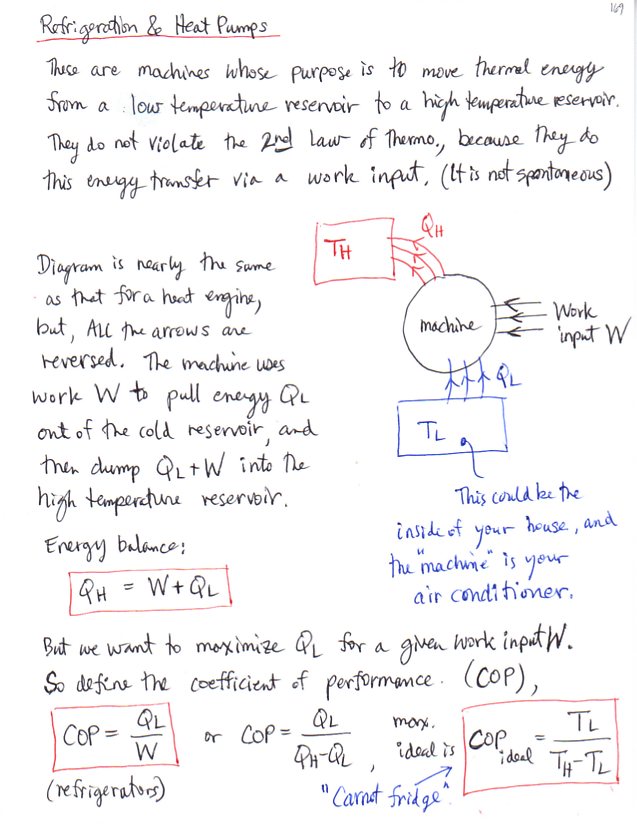 169
Refrigeration & Heat Pumps
These are machines whose purpose is to move thermal energy
from a low temperature reservoir to a high temperature reservoir.
They do not violate the 2nd Law of Thermo., because they do
this energy transfer via a work input. (It is not spontaneous)
Diagram is nearly the same
as that for a heat engine,
but, ALL the arrows are
reversed. The machine uses
work W to pull energy QL
out of the cold reservoir, and
then dump QL+W into the
high temperature reservoir.
TH
QH
machine
Work
input W
QL
TL
This could be the
inside of your house, and
the "machine" is your
air conditioner.
Energy balance:
QH = W + QL
But we want to maximize QL for a given work input W.
So define the coefficient of performance. (COP),
COP = QL/W or COP = QL/(QH-QL), max. ideal is COP ideal = TL/(TH-TL)
(refrigerators)
"Carnot fridge".